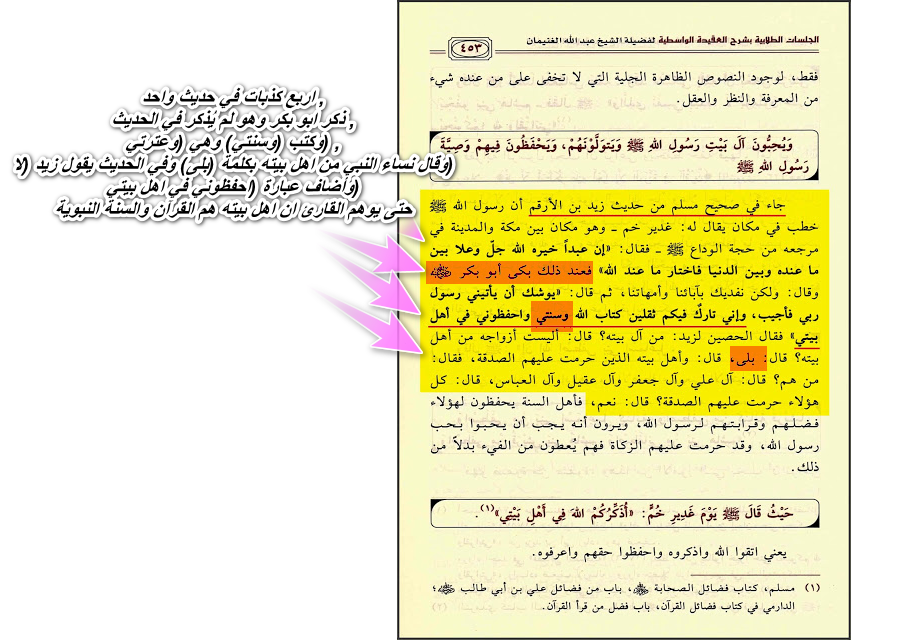 , اربع كذبات في حديث واحد
, ذكر ابو بكر وهو لم يُذكر في الحديث
, (وكتب (وسنتي) وهي (وعترتي
(وقال نساء النبي من اهل بيته بكلمة (بلى) وفي الحديث يقول زيد (لا
(واضاف عبارة (احفظوني في اهل بيتي
حتى يوهم القارئ ان اهل بيته هم القرآن والسنة النبوية
الجلسات الطلابية بشرح العقيدة الواسطية لفضيلة الشيخ عبد الله الغنيمان
٤٥٣
فقط، لوجود النصوص الظاهرة الجلية التي لا تخفى على من عنده شيء
من المعرفة والنظر والعقل.
وَيُحِبُّونَ آلَ بَيْتِ رَسُولِ اللهِ ﷺ وَيَتَوَلَّوْنَهُمْ، وَيَحْفَظُونَ فِيهِمْ وَصِيَّةَ
رَسُولِ اللهِ ﷺ
جاء في صحيح مسلم من حديث زيد بن الأرقم أن رسول الله ﷺ
خطب في مكان يقال له: غدير خم ـ وهو مكان بين مكة والمدينة في
مرجعه من حجة الوداع ﷺ ـ فقال: «إن عبداً خيره الله جلّ وعلا بين
ما عنده وبين الدنيا فاختار ما عند الله» فعند ذلك بكى أبو بكر رضي الله عنه
وقال: ولكن نفديك بآبائنا وأمهاتنا، ثم قال: «يوشك أن يأتيني رسول
ربي فأجيب، وإني تاركٌ فيكم ثقلين كتاب الله وسنتي واحفظوني في أهل
بيتي» فقال الحصين لزيد: من آل بيته؟ قال: أليست أزواجه من أهل
بيته؟ قال: بلى، قال: وأهل بيته الذين حرمت عليهم الصدقة، فقال:
من هم؟ قال: آل علي وآل جعفر وآل عقيل وآل العباس، قال: كل
هؤلاء حرمت عليهم الصدقة؟ قال: نعم، فأهل السنة يحفظون لهؤلاء
فضلهم وقرابتهم لرسول الله، ويرون أنه يجب أن يحبوا بحب
رسول الله، وقد حرمت عليهم الزكاة فهم يُعطون من الفيء بدلاً من
ذلك.
حَيْثُ قَالَ ﷺ يَوْمَ غَدِيرِ خُمٍّ: «أُذَكِّرُكُمْ اللهَ فِي أَهْلِ بَيْتِي»(١).
يعني اتقوا الله واذكروه واحفظوا حقهم واعرفوه.
(١) مسلم، كتاب فضائل الصحابة رضي الله عنهم، باب من فضائل علي بن أبي طالب رضي الله عنه؛
الدارمي في كتاب فضائل القرآن، باب فضل من قرأ القرآن.